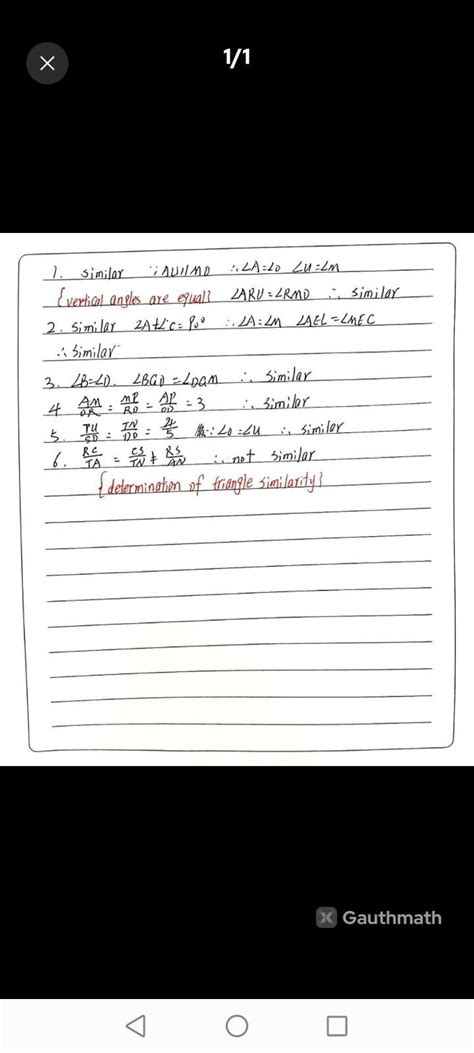 1/1
1. similar ∵AU//MD ∴∠A=∠D ∠U=∠M
{vertical angles are equal} ∠ARU=∠RMD ∴ similar
2. similar ∠A+∠C=90° ∴∠A=∠M ∠AEL=∠MEC
∴ similar
3. ∠B=∠D. ∠BGD=∠DGM ∴ similar
4 AM/OR = MP/RD = AP/OD = 3 ∴ similar
5. TU/SD = IN/DO = 24/5 ∵∠D=∠U ∴ similar
6. RC/TA = CS/TN ≠ RS/AN ∴ not similar
{determination of triangle similarity}
Gauthmath